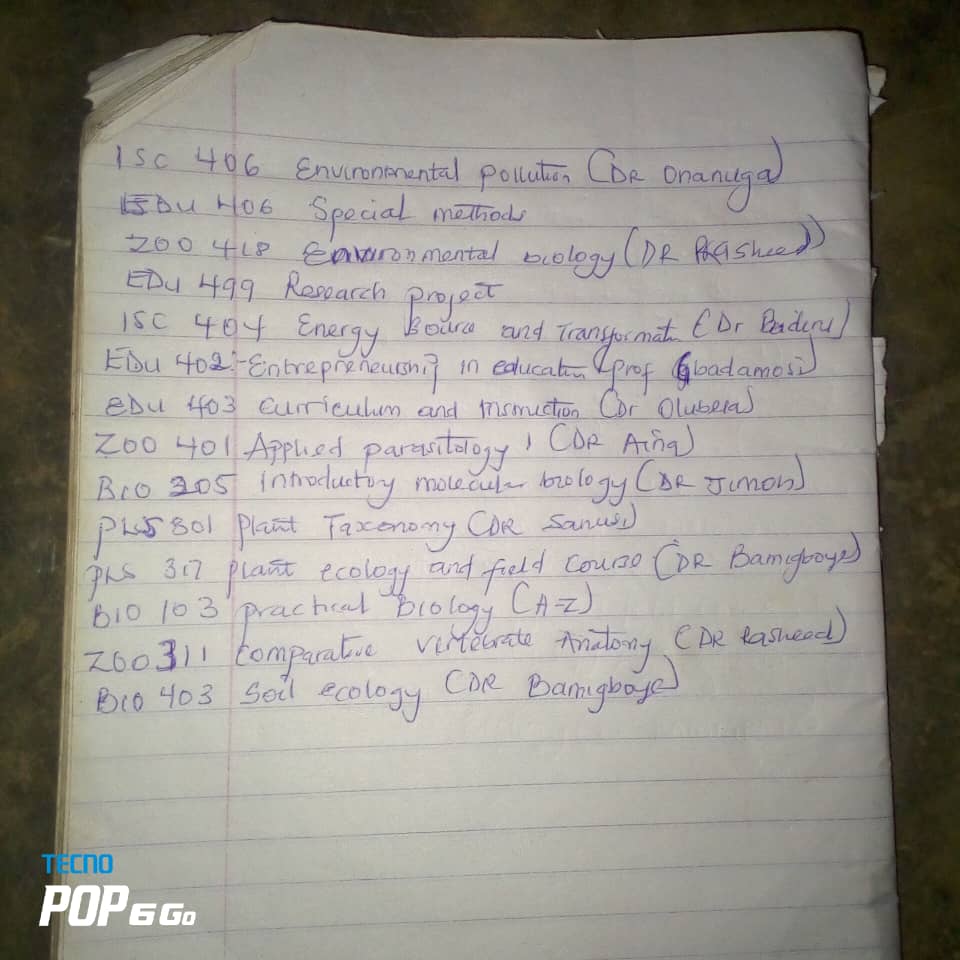 ISC 406 Environmental pollution (DR Onanuga)
EDU 406 Special methods
ZOO 418 Environmental biology (DR Rasheed)
EDU 499 Research project
ISC 404 Energy Source and Transformatn (Dr Badiru)
EDU 402:- Entrepreneurship in education (prof Gbadamosi)
EDU 403 Curriculum and Instruction (Dr Olubela)
ZOO 401 Applied parasitology 1 (DR Aina)
BIO 205 introductory molecular biology (DR Jimoh)
PLS 301 plant Taxonomy (DR Sanusi)
PLS 317 plant ecology and field course (DR Bamigboye)
BIO 103 practical Biology (A-Z)
ZOO 311 Comparative vertebrate Anatomy (DR Rasheed)
BIO 403 Soil ecology (DR Bamigboye)
TECNO
POP 6 Go